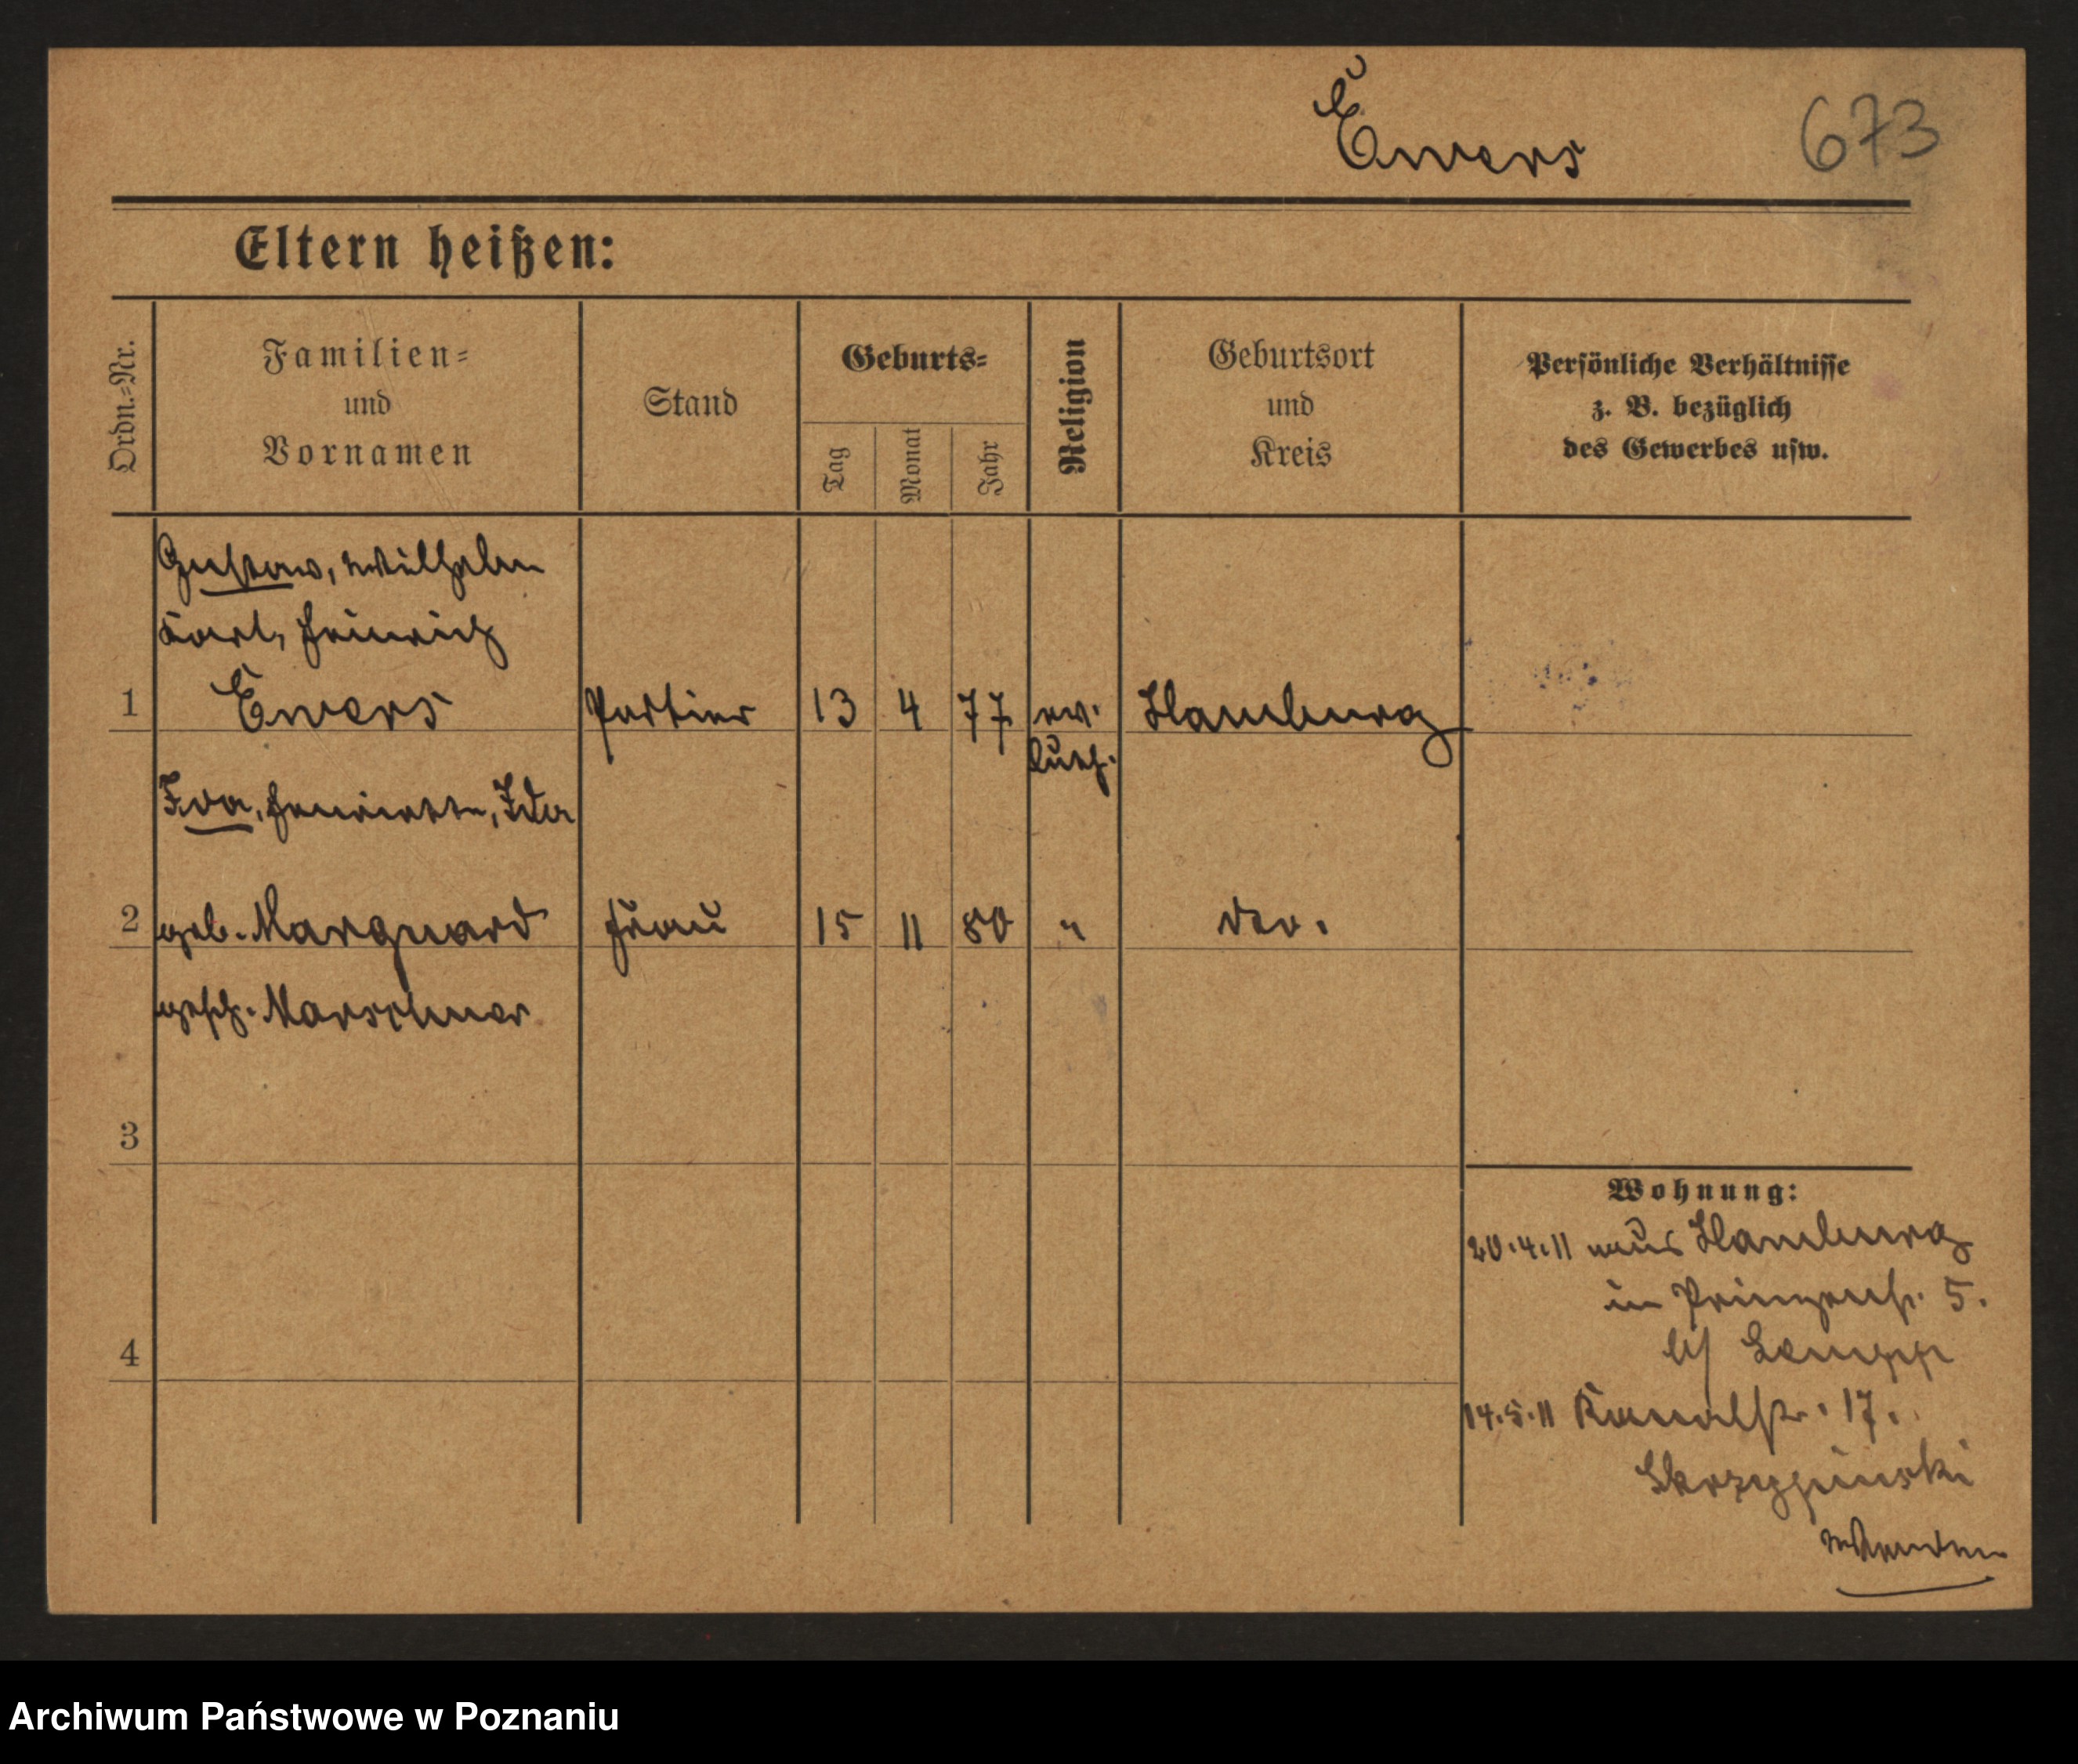 Ewers
673
Eltern heißen:
Ordn.=Nr.
Familien=
und
Vornamen
Stand
Geburts=
Tag
Monat
Jahr
Religion
Geburtsort
und
Kreis
Persönliche Verhältnisse
z. B. bezüglich
des Gewerbes usw.
Gustav, Wilhelm
Karl, Heinrich
1 Ewers Portier 13 4 77 ev. Hamburg
luth.
Eva, Henriette, Ida
2 geb. Marquard Frau 15 11 80 " do.
gesch. Marschner
3
4
Wohnung:
20.4.11 aus Hamburg
in Prinzenstr. 5.
b/ Lempp
14.5.11 Kanalstr. 17.
Skrzypinski
wenden
Archiwum Państwowe w Poznaniu